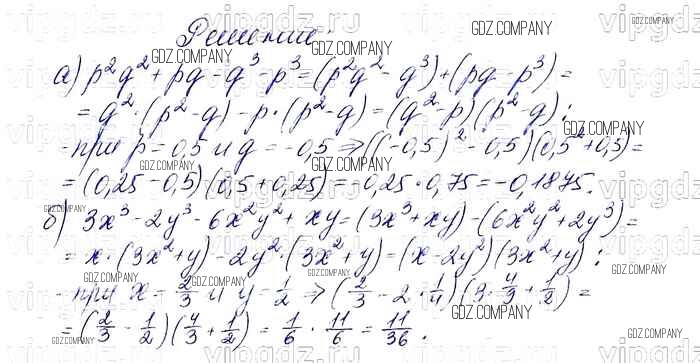 Решение:
а) p²q² + pq - q³ - p³ = (p²q² - q³) + (pq - p³) =
= q² · (p² - q) - p · (p² - q) = (q² - p)(p² - q);
- при p = 0,5 и q = -0,5 ⇒ ((-0,5)² - 0,5)(0,5² + 0,5) =
= (0,25 - 0,5)(0,5 + 0,25) = -0,25 · 0,75 = -0,1875.
б) 3x³ - 2y³ - 6x²y² + xy = (3x³ + xy) - (6x²y² + 2y³) =
= x · (3x² + y) - 2y² · (3x² + y) = (x - 2y²)(3x² + y);
- при x = 2/3 и y = 1/2 ⇒ (2/3 - 2 · 1/4)(3 · 4/9 + 1/2) =
= (2/3 - 1/2)(4/3 + 1/2) = 1/6 · 11/6 = 11/36.
vipgdz.ru
GDZ.COMPANY